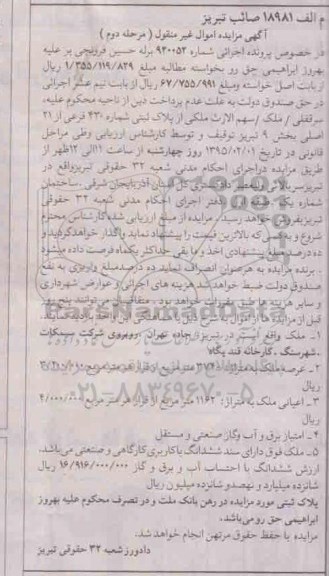 م الف ۱۸۹۸۱ صائب تبریز
آگهی مزایده اموال غیر منقول ( مرحله دوم )
در خصوص پرونده اجرائی شماره ۹۴۰۰۵۲ برله حسین قرویچی بر علیه
بهروز ابراهیمی حق رو بخواسته مطالبه مبلغ ۱/۳۵۵/۱۱۹/۸۲۹ ریال
از بابت اصل خواسته ومبلغ ۶۷/۷۵۵/۹۹۱ ریال از بابت نیم عشر اجرائی
در حق صندوق دولت به علت عدم پرداخت دین از ناحیه محکوم علیه،
سرقفلی / ملک /سهم الارث ملکی از پلاک ثبتی شماره ۴۳۰ فرعی از ۲۱
اصلی بخش ۹ تبریز توقیف و توسط کارشناس ارزیابی وطی مراحل
قانونی در تاریخ ۱۳۹۵/۰۲/۰۱ روز چهارشنبه از ساعت ۱۱الی ۱۲ظهر از
طریق مزایده دراجرای احکام مدنی شعبه ۳۲ حقوقی تبریزواقع در
تبریزسربالائی دادگستری کل استان آذربایجان شرقی -ساختمان
شماره یک طبقه دفتر اجرای احکام مدنی شعبه ۳۲ حقوقی
تبریزبفروش خواهد رسید. مزایده از مبلغ ارزیابی شده کارشناس محترم
شروع و بدهکس که بالاترین قیمت را پیشنهاد نماید واگذار خواهدگردید و
ده درصد مبلغ پیشنهادی اخذ و ما بقی حداکثر یکماه فرصت داده میشود
. برنده مزایده به هرعنوان انصراف نماید ده درصدمبلغ واریزی به نفع
صندوق دولت ضبط خواهد شد هزینه های اجرائی و عوارض شهرداری
و سایر هزینه ها طبق مقررات خواهد بود. متقاضیان می توانند پنج روز
قبل از مزایده
۱- ملک واقع است در تبریز جاده تهران روبروی شرکت سیمکات
،شهرسنگ ، کارخانه قند پگاه
۲- عرصه ملک به متراژ متر مربع از قرار هر متر مربع
ریال
۳- اعیانی ملک به متراژ ۱۱۶۲ متر مربع از قرار هر متر مربع ۴/۰۰۰/۰۰۰
ریال
۴ - امتیاز برق و آب وگاز صنعتی و مستقل
۵- ملک فوق دارای سند ششدانگ باکاربری کارگاهی و صنعتی می‌باشد.
ارزش ششدانگ با احتساب آب و برق و گاز ۱۶/۹۱۶/۰۰۰/۰۰۰ ریال
شانزده میلیارد و نهصدو شانزده میلیون ریال
پلاک ثبتی مورد مزایده در رهن بانک ملت و در تصرف محکوم علیه بهروز
ابراهیمی حق رو می‌باشد.
مزایده با حفظ حقوق مرتهن انجام خواهد شد.
دادورز شعبه ۳۲ حقوقی تبریز
۰۲۱-۸۸۳۴۹۶۷۰-۵